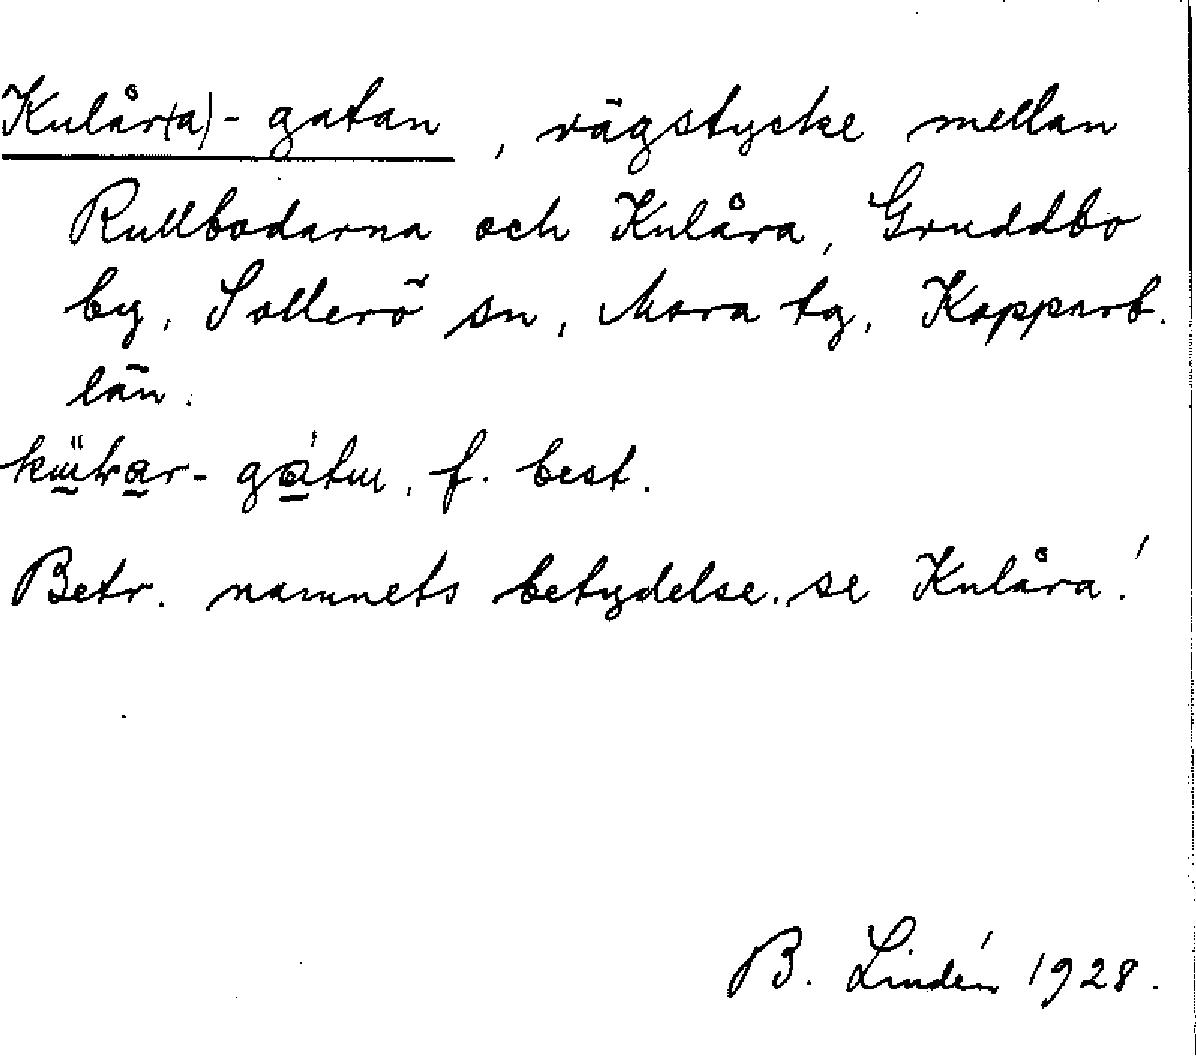 Kulår(a)-gatan, vägstycke mellan
Rullbodarna och Kulåra, Gruddbo
by, Sollerö sn, Mora tg, Kopparb.
län.
f. best.
Betr. namnets betydelse, se Kulåra!
B. Lindén 1928.